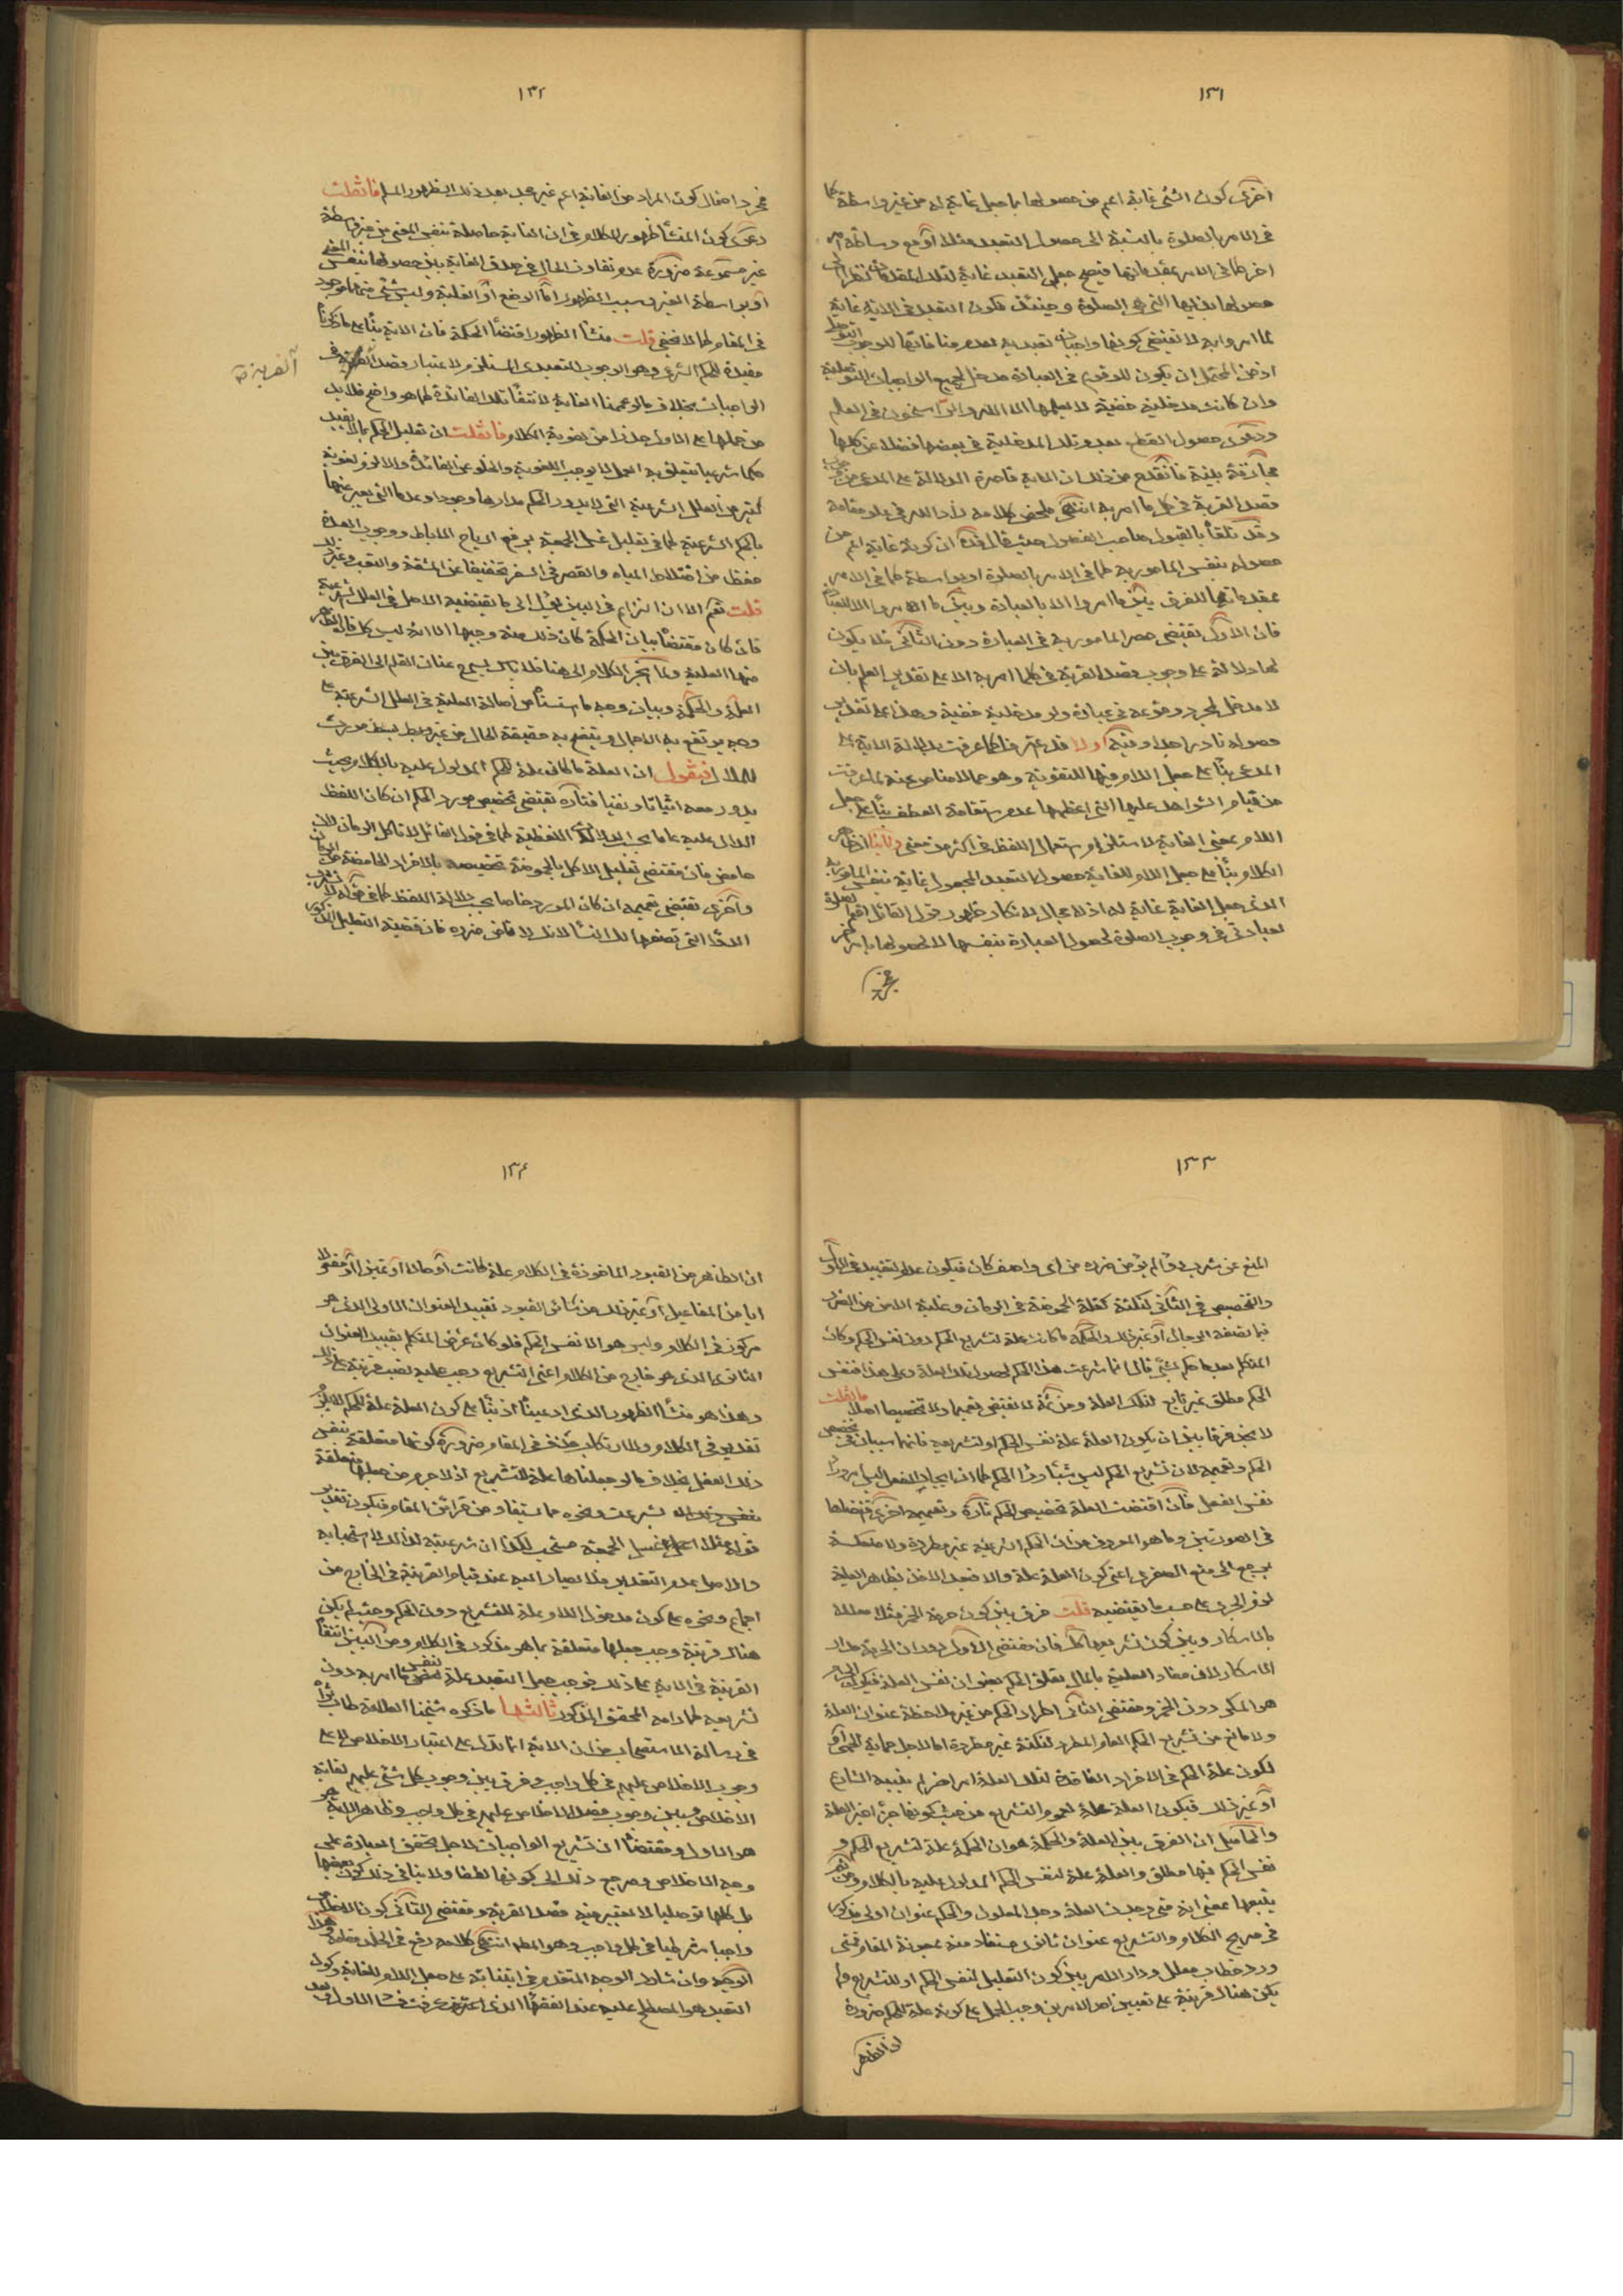 ١٣١
اخرى كون الشئ غاية اعم من حصولها باجعل غاية له من غير واسطة كما
فى الامر بالصلوة بالنسبة الى حصول التعبد مثلا او مع وساطة امر
اخر كما فى الامر بمقدماتها فيصح جعل التعبد غاية لتلك المقدمات نظرا الى
حصولها بذيها التى هو الصلوة وحينئذ فكون التعبد فى الاية غاية
لما امروا به لا يقتضى كونها واجبات تعبدية لعدم منافاتها للوجوب التوصلى
اذ من المحتمل ان يكون للوقوع فى العبادة مدخل لجميع الواجبات التوصلية
وان كانت مدخلية خفية لا يعلمها الا الله والراسخون فى العلم
ودعوى حصول القطع بعدم تلك المدخلية فى بعضها فضلا عن كلها
مجازفة بينة فانقدح من ذلك ان الاية قاصرة الدلالة على المدعى من وجوب
قصد القربة فى كل ما امر به انتهى ملخص كلامه زاد الله فى علو مقامه
وقد تلقاه بالقبول صاحب الفصول حيث قال هذا ان كونه غاية اعم من
حصوله بنفس المامور به كما فى الامر بالصلوة او بواسطة كما فى الامر
بمقدماتها للفرق بين ما امروا الا بالعبادة وبين ما امروا الا للعبادة
فان الاول يقتضى حصر المامور به فى العبادة دون الثانى فلا يكون
لها دلالة على وجوب قصد القربة فى كلما امر به الا على تقدير العلم بان
لا مدخل لمجرد وقوعه فى عبادة ولو مدخلية خفية وهذا على تقدير
حصوله نادر جدا وفيه اولا قد عثرنا كما عرفت بدلالة الاية على
المدعى بناء على جعل اللام فيها للتقوية وهو مما لا مناص عنه لما عرفت
من قيام الشواهد عليها التى اعظمها عدم استقامة العطف بناء على جعل
اللام بمعنى الغاية لاستلزامه استعمال اللفظ فى اكثر من معنى وثانيا ان ظاهر
الكلام بناء على جعل اللام للغاية حصول التعبد المجعول غاية بنفس المامور به
الذى جعل الغاية غاية له اذ لا مجال لانكار ظهور قول القائل اقم الصلوة
لعبادتى فى وجوب الصلوة لحصول العبادة بنفسها لا لحصولها بامر اخر
١٣٢
فمجرد احتمال كون المراد من الغاية اعم غير مجد بعد ذلك الظهور المسلم فان قلت
دعوى كون المنشأ ظهور الكلام فى ان الغاية حاصلة بنفس المغيى من غير واسطة
غير مسموعة ضرورة عدم تفاوت الحال فى صدق الغاية بين حصولها بنفس المغيى
او بواسطة الغير وسبب الظهور اما الوضع او الغلبة وليس شئ منهما موجود
فى المقام كما لا يخفى قلت منشأ الظهور اقتضاء الحكمة فان الاية بناء على ما ذكرنا
مفيدة للحكم الشرعى وهو الوجوب التعبدى المستلزم لاعتبار قصد القربة فى
القربة
الواجبات بخلاف ما لو عممنا الغاية لانتفاء تلك الفائدة كما هو واضح فلا بد
من حملها على الاول حذرا من لغوية الكلام فان قلت ان تعليل الحكم بما لا يفيد
حكما شرعيا يتعلق به العمل لا يوجب اللغوية والخلو عن الفائدة والا لزم لغوية
كثير من العلل الشرعية التى لا يدور الحكم مدارها وجودا وعدما التى يعبر عنها
بالحكم الشرعية كما فى تعليل غسل الجمعة برفع ارياح الاباط ووجوب العدة
حفظا من اختلاط المياه والقصر فى السفر تخفيفا عن المشقة والتعب وغير ذلك
قلت نعم الا ان التزام فى البين يؤل الى ما يقتضيه الاصل فى العلل الشرعية
فان كان مقتضاه بيان الحكمة كان ذلك منه وجيها الا انه ليس كل ما فان الظاهر
منها العلية ولما انجر الكلام الى هنا فلا باس ببسط عنان القلم الى الفرق بين
العلة والحكمة وبيان وجه ما استسنا من اصالة العلية فى العلل الشرعية على
وجه يرتفع به الاجمال ويتضح به حقيقة الحال من غير وبط بسط مورث
للملال فيقول ان العلة ما كان علة للحكم المدلول عليه بالكلام بحيث
يدور معه اثباتا ونفيا فتارة تقتضى تخصيص مورد الحكم ان كان اللفظ
الدال عليه عاما بحسب الدلالة اللفظية كما فى قول القائل لا تاكل الرمان لانه
حامض فان مقتضى تعليل الاكل بالحموضة تخصيصه بالافراد الحامضة من الرمان
واخرى تقتضى تعميمه ان كان المورد خاصا بحسب دلالة اللفظ كما فى قوله لا تشرب
الدواء التى تصفها لك النساء لانك لا تأمن ضرره فان قضية التعليل المذكور
١٣٣
المنع عن شرب دواء لم يؤمن ضرره من اى واصف كان فيكون عدم التقييد فى الاول
والتخصيص فى الثانى لنكتة كقلة الحموضة فى الرمان وغلبة الامن من الضرر
فيما يصفه الرجال او غير ذلك والحكمة ما كانت علة لتشريع الحكم دون نفس الحكم وكان
المتكلم بعدما حكم بشئ قال انما شرعت هذا الحكم لحصول تلك العلة وعلى هذا فنفس
الحكم مطلق غير تابع لتلك العلة ومن ثمة لا يقتضى تعميما ولا تخصيصا اصلا فان قلت
لا نجد فرقا بين ان يكون العلة علة نفس الحكم او لتشريعه فانهما سيان فى تخصيص
الحكم وتعميمه لان تشريع الحكم ليس شيئا وراء الحكم كما ان ايجاد الفعل ليس وراء
نفس الفعل فان اقتضت العلة تخصيص الحكم تارة وتعميمه اخرى فتقتضيها
فى الصورتين وما هو المعروف من ان الحكم الشرعية غير مطردة ولا منعكسة
يرجع الى منع الصغرى اعنى كون العلة علة والا فبعد الاخذ بظاهر العلية
لزم الجرى على حسب ما يقتضيه قلت فرق بين كون حرمة الخمر مثلا معللة
بالاسكار وبين كون تشريعها كك فان مقتضى الاول دوران الحرمة مدار
الاسكار لان مفاد العلية بالمال تعلق الحكم بعنوان نفس العلة فيكون الحرام
هو المسكر دون الخمر ومقتضى الثانى اطراد الحكم من غير ملاحظة عنوان العلة
ولا مانع من تشريع الحكم العام المطرد لنكتة غير مطردة اما لاجل حماية الحمى او
لكون علة الحكم فى الافراد الفاقدة لتلك العلة امر اخر لم يبينه الشارع
او غير ذلك فيكون العلة علة لعموم التشريع من حيث كونها جزء اخير العلة
والحاصل ان الفرق بين العلة والحكمة هو ان الحكمة علة لتشريع الحكم و
نفس الحكم فيها مطلق والعلة علة لنفس الحكم المدلول عليه بالكلام ومن ثم
يتبعها بمعنى انه متى وجدت العلة وجد المعلول والحكم عنوان اولى مذكور
فى صريح الكلام والتشريع عنوان ثانوى مستفاد منه بمعونة المقام فمتى
ورد خطاب معلل ودار الامر بين كون التعليل لنفس الحكم او للتشريع ولم
يكن هناك قرينة على تعيين احد الامرين وجب الحمل على كونه علة للحكم ضرورة
ان الظاهر
١٣٤
ان الظاهر من القيود الماخوذة فى الكلام علة كانت او حالا او تميزا او مفعولا
ايا من المفاعيل او غير ذلك من سائر القيود تقييد العنوان الاولى الذى هو
مركوز فى الكلام وليس هو الا نفس الحكم فلو كان غرض المتكلم تقييد العنوان
الثانوى الذى هو خارج من الكلام اعنى التشريع وجب عليه نصب قرينة على ذلك
وهذا هو منشأ الظهور الذى ادعيناه اذ بناء على كون العلة علة للحكم لا يلزم
تقدير فى الكلام ولا ارتكاب حذف فى المقام ضرورة كونها متعلقة بنفس
ذلك الفعل بخلاف ما لو جعلناها علة للتشريع اذ لا جرم من جعلها متعلقة
بشرعت ونحوه مما يستفاد من قرائن المقام فيكون تقدير
قوله مثلا غسل الجمعة مستحب لكذا ان شرعيته لذلك لا استحبابه
والاصل عدم التقدير فلا يصار اليه عند قيام القرينة فى الخارج من
اجماع ونحوه على كون مدخول اللام علة للتشريع دون الحكم وحيث لم يكن
هناك قرينة وجب جعلها متعلقة بما هو مذكور فى الكلام ومن البين انتفاء
القرينة فى الاية على ذلك فوجب جعل التعبد علة لنفس ما امر به دون
تشريعه كما رامه المحقق المذكور ثالثها ما ذكره شيخنا العلامة طاب ثراه
فى رسالة الاستصحاب من ان الاية انما تدل على اعتبار الاخلاص لا على
وجوب الاخلاص عليهم فى كل واجب وفرق بين وجوب كل شئ عليهم لغاية
الاخلاص وبين وجوب قصد الاخلاص عليهم فى كل واجب وظاهر الاية هو
هو الاول ومقتضاه ان تشريع الواجبات لاجل تحقق العبادة على
وجه الاخلاص ومرجع ذلك الى كونها لطفا ولا ينافى ذلك كون بعضها
بل كلها توصليا لا يعتبر فيه قصد القربة ومقتضى الثانى كون الاخلاص
واجبا شرطيا فى كل واجب وهو المط انتهى كلامه رفع فى الخلد مقامه وهذا
الوجه وان شارك الوجه المتقدم فى ابتنائه على جعل اللام للغاية وكون
التعبد هو المصطلح عليه عند الفقهاء الذى اعترف عرفت فساد الاول بعد